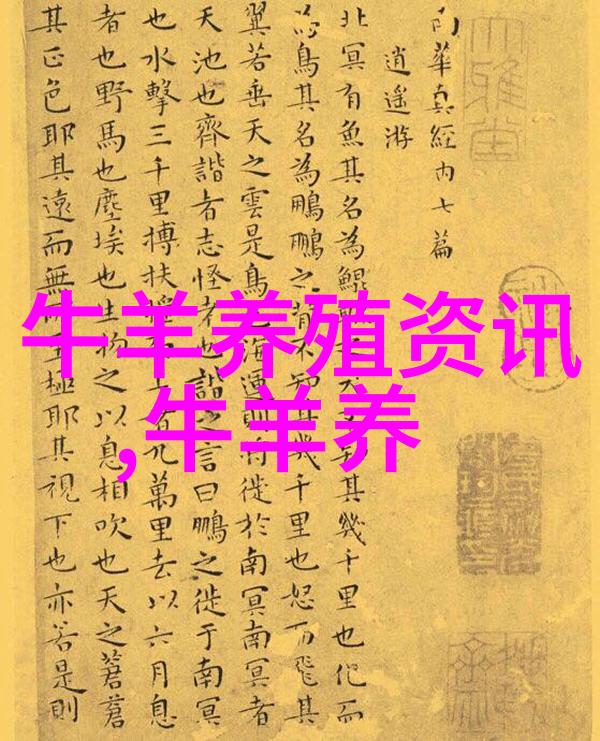 南華真經内七篇
逍遥游
北冥有魚其名為鯤其幾千里也化而
為鳥其名為鵬鵬之背不知其幾千里也怒而飛其
翼若垂天之雲是鳥也海運則将徙於南冥南冥者
天池也齊諧者志怪者也諧之言曰鵬之徙于南冥
也水擊三千里摶扶搖上者九萬里去以六月息
者也野馬也塵埃也生物之以息相吹也天之蒼蒼
其正色耶其遠而無至極耶其視下也亦若是則
牛羊养殖资讯
,牛羊养